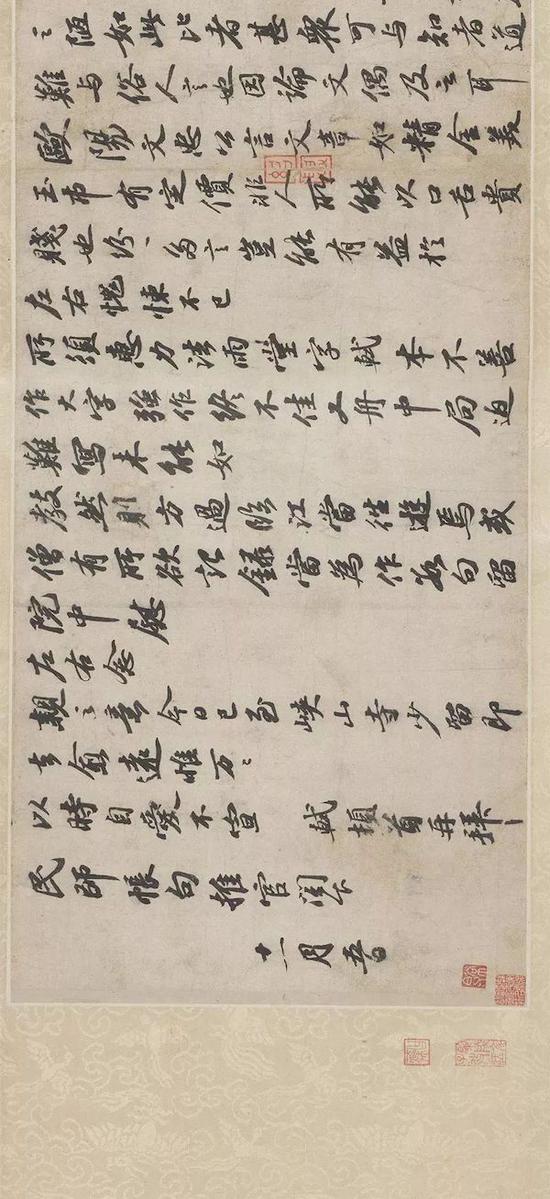 之陋如此比者甚衆可与知者道
難与俗人言也因論文偶及之耳
歐陽文忠公言文章如精金美
玉市有定價非人所能以口舌貴
賤也紛〻多言豈能有益於
左右愧悚不已
所須惠力法雨堂字軾本不善
作大字強作終不佳又舟中局迫
難寫未能如
教然則方過臨江當往遊焉或
僧有所欲記錄當為作數句留
院中慰
左右念
親之意今日已至峽山寺少留即
去愈遠惟万〻
以時自愛不宣 軾頓首再拜
民師帳句推官閣下
十一月五日